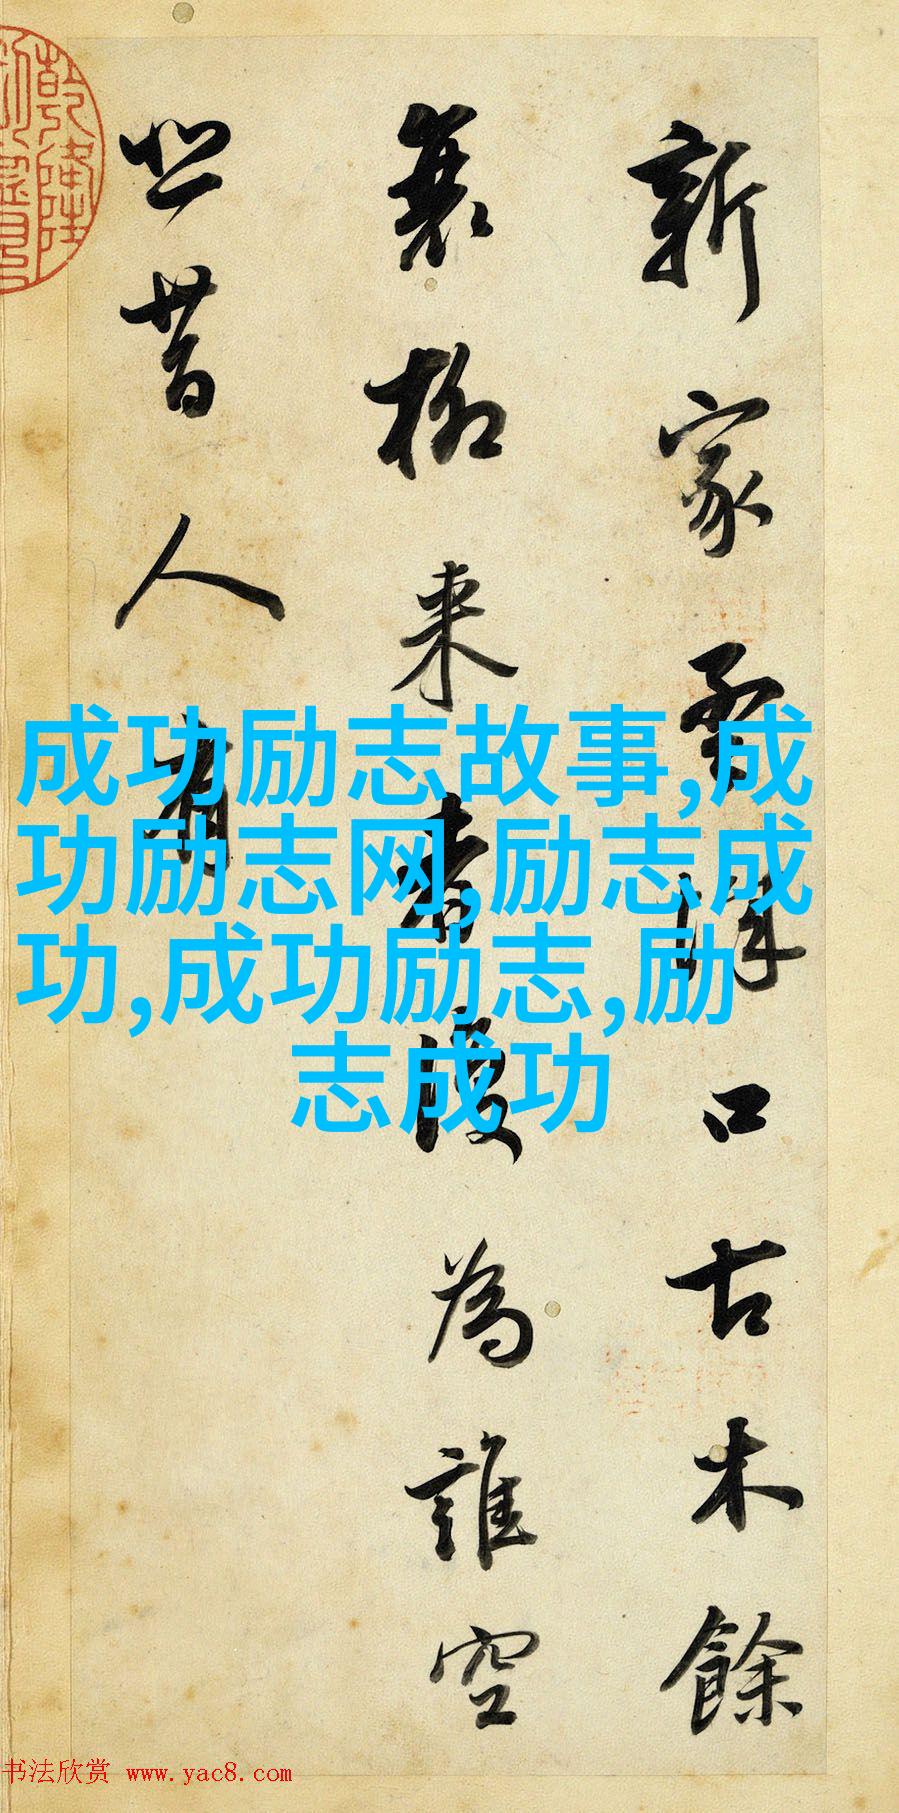 新家孟城口古木餘
衰柳来者復為誰空
悲昔人有
成功励志故事,成
功励志网,励志成
功,成功励志,励
志成功
书法欣赏 www.yac8.com